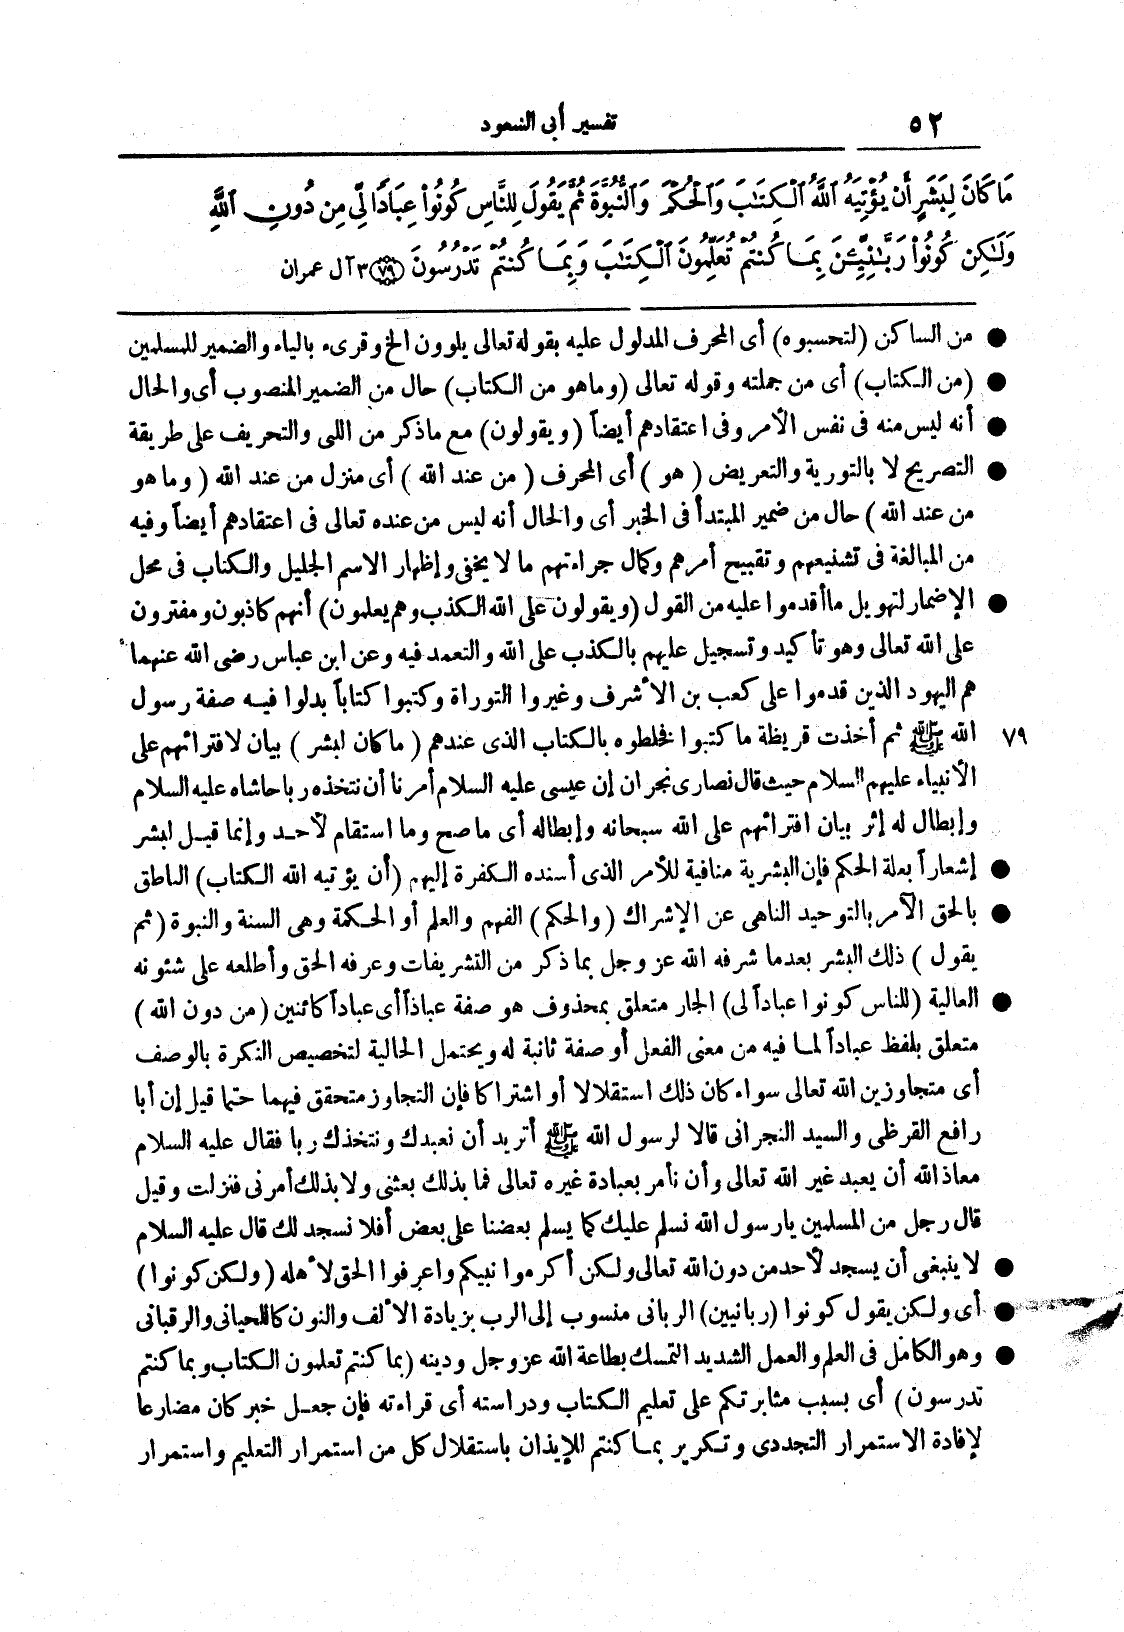 ٥٢
تفسير أبى السعود
مَا كَانَ لِبَشَرٍ أَن يُؤْتِيَهُ ٱللَّهُ ٱلْكِتَٰبَ وَٱلْحُكْمَ وَٱلنُّبُوَّةَ ثُمَّ يَقُولَ لِلنَّاسِ كُونُوا۟ عِبَادًا لِّى مِن دُونِ ٱللَّهِ
وَلَٰكِن كُونُوا۟ رَبَّٰنِيِّـۧنَ بِمَا كُنتُمْ تُعَلِّمُونَ ٱلْكِتَٰبَ وَبِمَا كُنتُمْ تَدْرُسُونَ ٧٩ ٣ آل عمران
● من الساكن (لتحسبوه) أى المحرف المدلول عليه بقوله تعالى يلوون الخ وقرىء بالياء والضمير للمسلمين
● (من الكتاب) أى من جملته وقوله تعالى (وما هو من الكتاب) حال من الضمير المنصوب أى والحال
● أنه ليس منه فى نفس الأمر وفى اعتقادهم أيضاً (ويقولون) مع ما ذكر من اللى والتحريف على طريقة
● التصريح لا بالتورية والتعريض ( هو ) أى المحرف ( من عند الله ) أى منزل من عند الله ( وما هو
من عند الله ) حال من ضمير المبتدأ فى الخبر أى والحال أنه ليس من عنده تعالى فى اعتقادهم أيضاً وفيه
من المبالغة فى تشنيعهم وتقبيح أمرهم وكمال جراءتهم ما لا يخفى وإظهار الاسم الجليل والكتاب فى محل
● الإضمار لتهويل ما أقدموا عليه من القول (ويقولون على الله الكذب وهم يعلمون) أنهم كاذبون ومفترون
على الله تعالى وهو تأكيد وتسجيل عليهم بالكذب على الله والتعمد فيه وعن ابن عباس رضى الله عنهما
هم اليهود الذين قدموا على كعب بن الأشرف وغيروا التوراة وكتبوا كتاباً بدلوا فيه صفة رسول
٧٩ الله ﷺ ثم أخذت قريظة ما كتبوا فخلطوه بالكتاب الذى عندهم ( ما كان لبشر ) بيان لافترائهم على
الأنبياء عليهم السلام حيث قال نصارى نجران إن عيسى عليه السلام أمرنا أن نتخذه ربا حاشاه عليه السلام
وإبطال له إثر بيان افترائهم على الله سبحانه وإبطاله أى ما صح وما استقام لأحد وإنما قيل لبشر
● إشعاراً بعلة الحكم فإن البشرية منافية للأمر الذى أسنده الكفرة إليهم (أن يؤتيه الله الكتاب) الناطق
● بالحق الآمر بالتوحيد الناهى عن الإشراك ( والحكم ) الفهم والعلم أو الحكمة وهى السنة والنبوة (ثم
يقول ) ذلك البشر بعدما شرفه الله عز وجل بما ذكر من التشريفات وعرفه الحق وأطلعه على شئونه
● العالية (للناس كونوا عباداً لى) الجار متعلق بمحذوف هو صفة عباداً أى عباداً كائنين (من دون الله )
متعلق بلفظ عباداً لما فيه من معنى الفعل أو صفة ثانية له ويحتمل الحالية لتخصيص النكرة بالوصف
أى متجاوزين الله تعالى سواء كان ذلك استقلالا أو اشتراكا فإن التجاوز متحقق فيهما حتما قيل إن أبا
رافع القرظى والسيد النجرانى قالا لرسول الله ﷺ أتريد أن نعبدك ونتخذك ربا فقال عليه السلام
معاذ الله أن يعبد غير الله تعالى وأن نأمر بعبادة غيره تعالى فما بذلك بعثنى ولا بذلك أمرنى فنزلت وقيل
قال رجل من المسلمين يا رسول الله نسلم عليك كما يسلم بعضنا على بعض أفلا نسجد لك قال عليه السلام
● لا ينبغى أن يسجد لأحد من دون الله تعالى ولكن أكرموا نبيكم واعرفوا الحق لأهله (ولكن كونوا)
● أى ولكن يقول كونوا (ربانيين) الربانى منسوب إلى الرب بزيادة الألف والنون كاللحيانى والرقبانى
● وهو الكامل فى العلم والعمل الشديد التمسك بطاعة الله عز وجل ودينه (بما كنتم تعلمون الكتاب وبما كنتم
تدرسون ) أى بسبب مثابرتكم على تعليم الكتاب ودراسته أى قراءته فإن جعل خبر كان مضارعا
لإفادة الاستمرار التجددى وتكرير بما كنتم للإيذان باستقلال كل من استمرار التعليم واستمرار